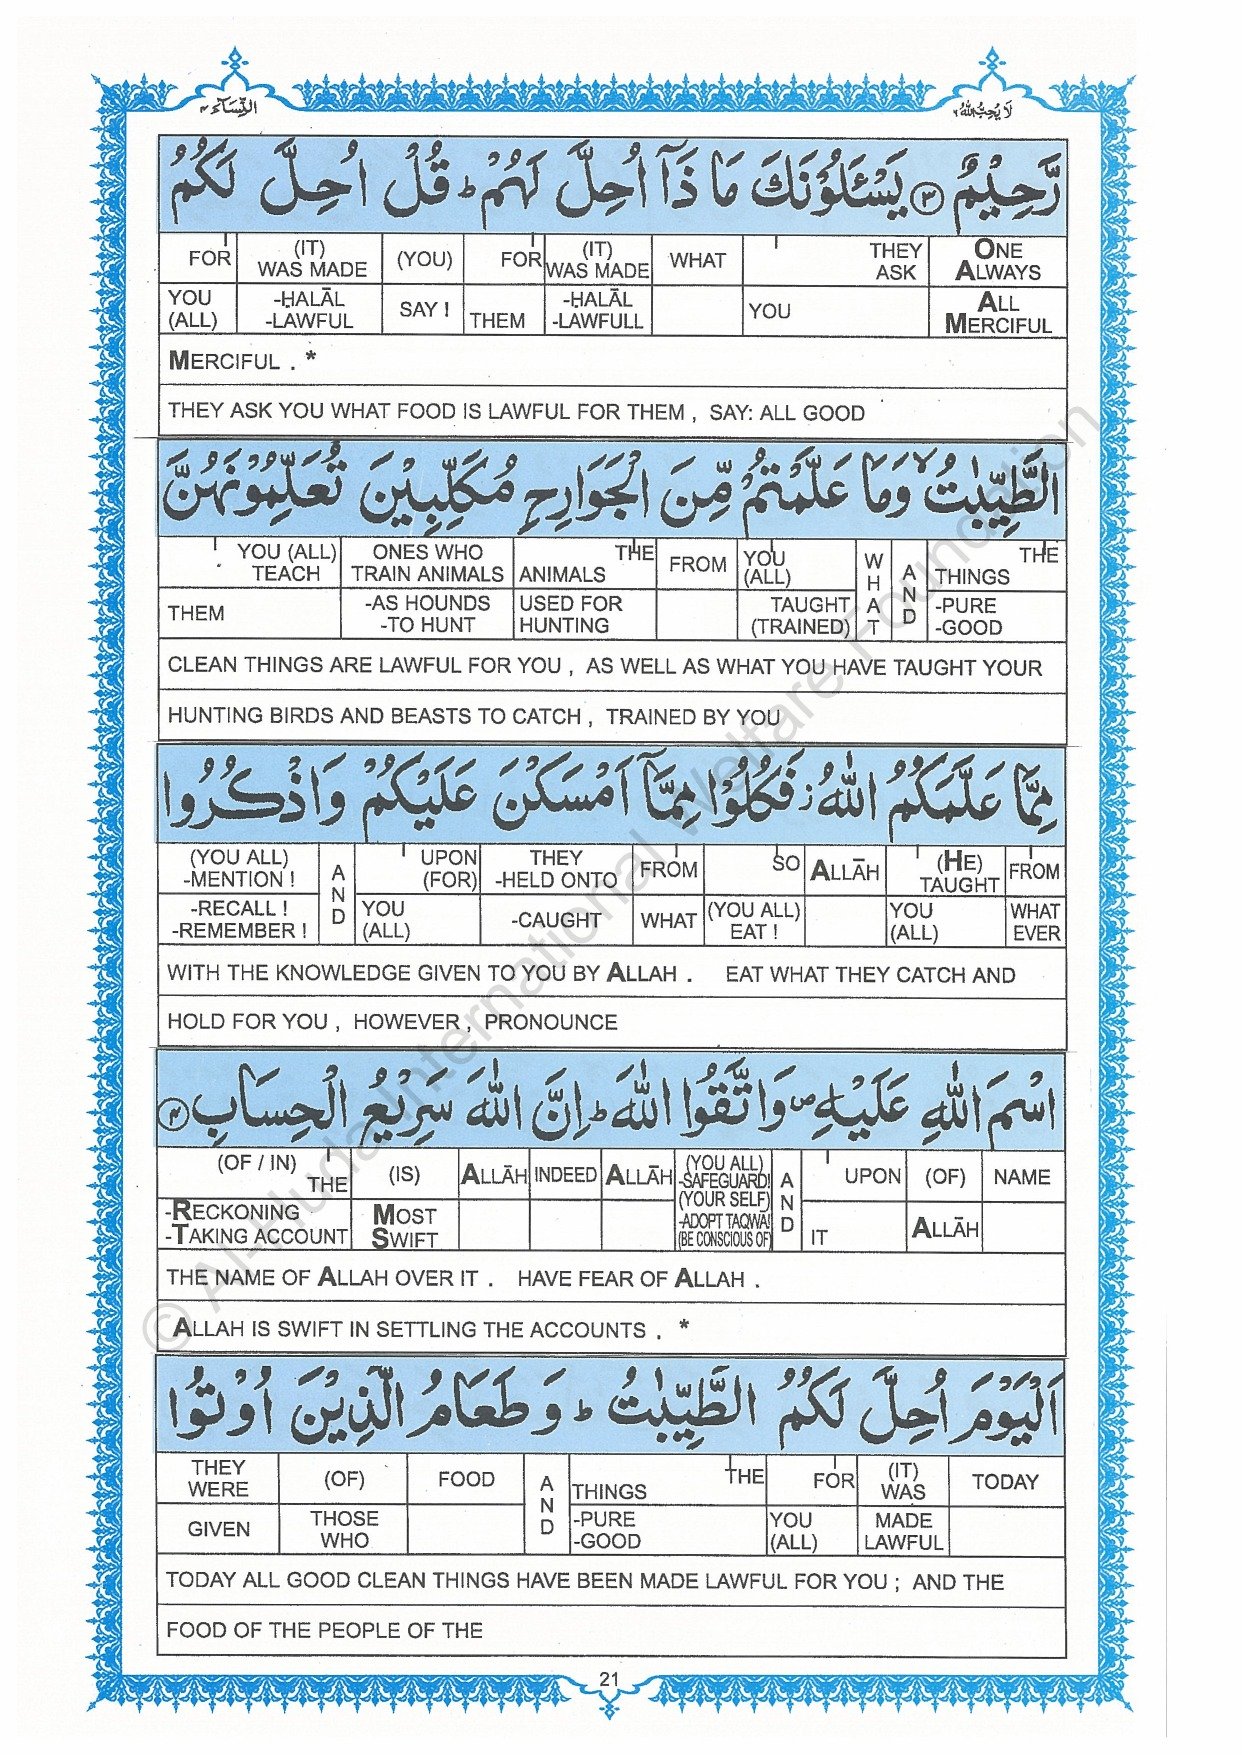 النِّسَاء ٤
لَا يُحِبُّ اللّٰهُ ٦
رَّحِيْمٌ ٣ يَسْـَٔلُوْنَكَ مَا ذَآ اُحِلَّ لَهُمْ ط قُلْ اُحِلَّ لَكُمُ
FOR (IT) WAS MADE (YOU) FOR (IT) WAS MADE WHAT THEY ASK ONE ALWAYS
YOU (ALL) -ḤALĀL -LAWFUL SAY ! THEM -ḤALĀL -LAWFULL YOU ALL MERCIFUL
MERCIFUL . *
THEY ASK YOU WHAT FOOD IS LAWFUL FOR THEM , SAY: ALL GOOD
الطَّيِّبٰتُ لا وَمَا عَلَّمْتُمْ مِّنَ الْجَوَارِحِ مُكَلِّبِيْنَ تُعَلِّمُوْنَهُنَّ
YOU (ALL) TEACH ONES WHO TRAIN ANIMALS THE ANIMALS FROM YOU (ALL) WHAT AND THE THINGS
THEM -AS HOUNDS -TO HUNT USED FOR HUNTING TAUGHT (TRAINED) -PURE -GOOD
CLEAN THINGS ARE LAWFUL FOR YOU , AS WELL AS WHAT YOU HAVE TAUGHT YOUR
HUNTING BIRDS AND BEASTS TO CATCH , TRAINED BY YOU
مِمَّا عَلَّمَكُمُ اللّٰهُ ز فَكُلُوْا مِمَّآ اَمْسَكْنَ عَلَيْكُمْ وَاذْكُرُوا
(YOU ALL) -MENTION ! AND UPON (FOR) THEY -HELD ONTO FROM SO ALLĀH (HE) TAUGHT FROM
-RECALL ! -REMEMBER ! YOU (ALL) -CAUGHT WHAT (YOU ALL) EAT ! YOU (ALL) WHAT EVER
WITH THE KNOWLEDGE GIVEN TO YOU BY ALLAH . EAT WHAT THEY CATCH AND
HOLD FOR YOU , HOWEVER , PRONOUNCE
اسْمَ اللّٰهِ عَلَيْهِ ص وَاتَّقُوا اللّٰهَ ط اِنَّ اللّٰهَ سَرِيْعُ الْحِسَابِ ٣
(OF / IN) THE (IS) ALLĀH INDEED ALLĀH (YOU ALL) -SAFEGUARD! (YOUR SELF) -ADOPT TAQWA! (BE CONSCIOUS OF) AND UPON (OF) NAME
-RECKONING -TAKING ACCOUNT MOST SWIFT IT ALLĀH
THE NAME OF ALLAH OVER IT . HAVE FEAR OF ALLAH .
ALLAH IS SWIFT IN SETTLING THE ACCOUNTS . *
اَلْيَوْمَ اُحِلَّ لَكُمُ الطَّيِّبٰتُ ط وَطَعَامُ الَّذِيْنَ اُوْتُوا
THEY WERE (OF) FOOD AND THE THINGS FOR (IT) WAS TODAY
GIVEN THOSE WHO -PURE -GOOD YOU (ALL) MADE LAWFUL
TODAY ALL GOOD CLEAN THINGS HAVE BEEN MADE LAWFUL FOR YOU ; AND THE
FOOD OF THE PEOPLE OF THE
21
© Al-Huda International Welfare Foundation